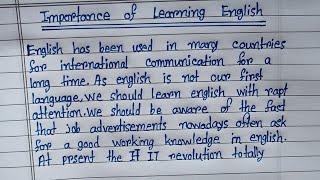 Importance of Learning English
English has been used in many countries
for international communication for a
long time. As english is not our first
language, we should learn english with rapt
attention. we should be aware of the fast
that job advertisements nowadays often ask
for a good working knowledge in english.
At prsent the If IT revolution totally